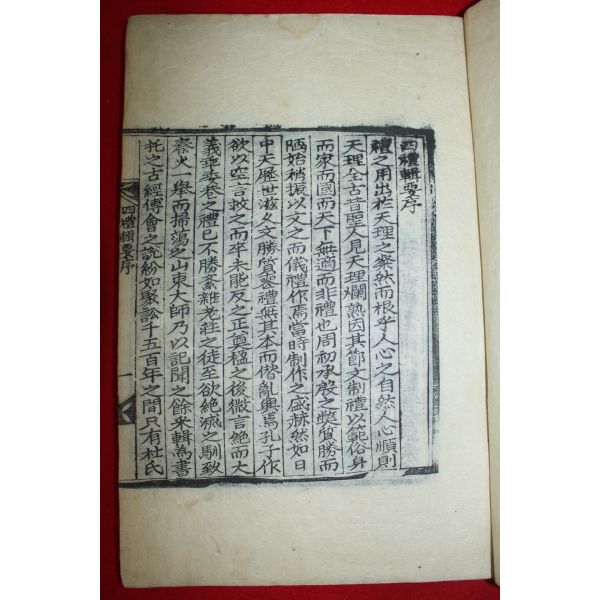 四禮輯要序
禮之用出於天理之粲然而根乎人心之自然人心順則
天理全古昔聖人見天理爛熟因其節文制禮以範俗身
而家而國而天下無適而非禮也周初承殷之弊質勝而
陋始稍振以文之而儀禮作焉當時制作之盛赫然如日
中天歷世滋久文勝質喪禮無其本而僭亂興焉孔子作
欲以空言救之而卒未能反之正奠楹之後微言絶而大
義乖委巷之禮已不勝紊雜老莊之徒至欲絶滅之馴致
秦火一擧而掃蕩之山東大師乃以記聞之餘采輯為書
托之古經傅會之說紛如聚訟千五百年之間只有杜氏
四禮輯要序
一